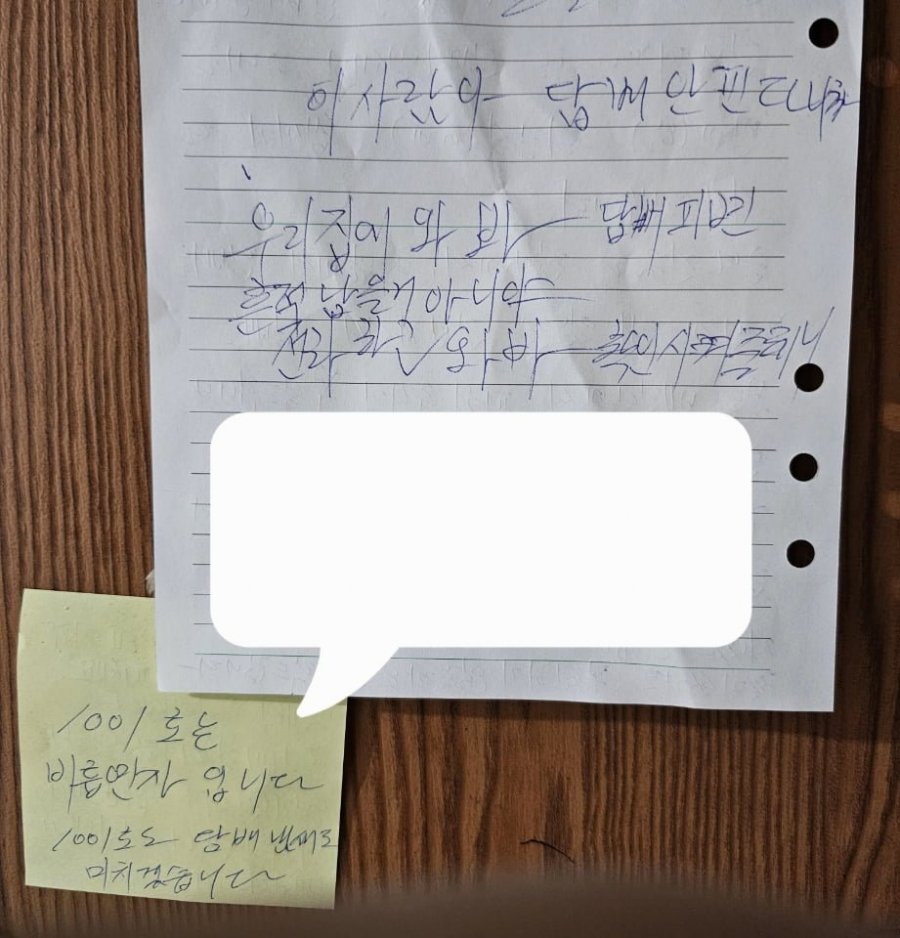 이 사람아 담배 안 핀다니까
우리집에 와 봐 담배 피번
흔적 남을거 아니야
전화 하고 와 봐 확인시켜줄테니
1001호는
비흡연자 입니다
1001호도 담배 냄새로
미치겠습니다